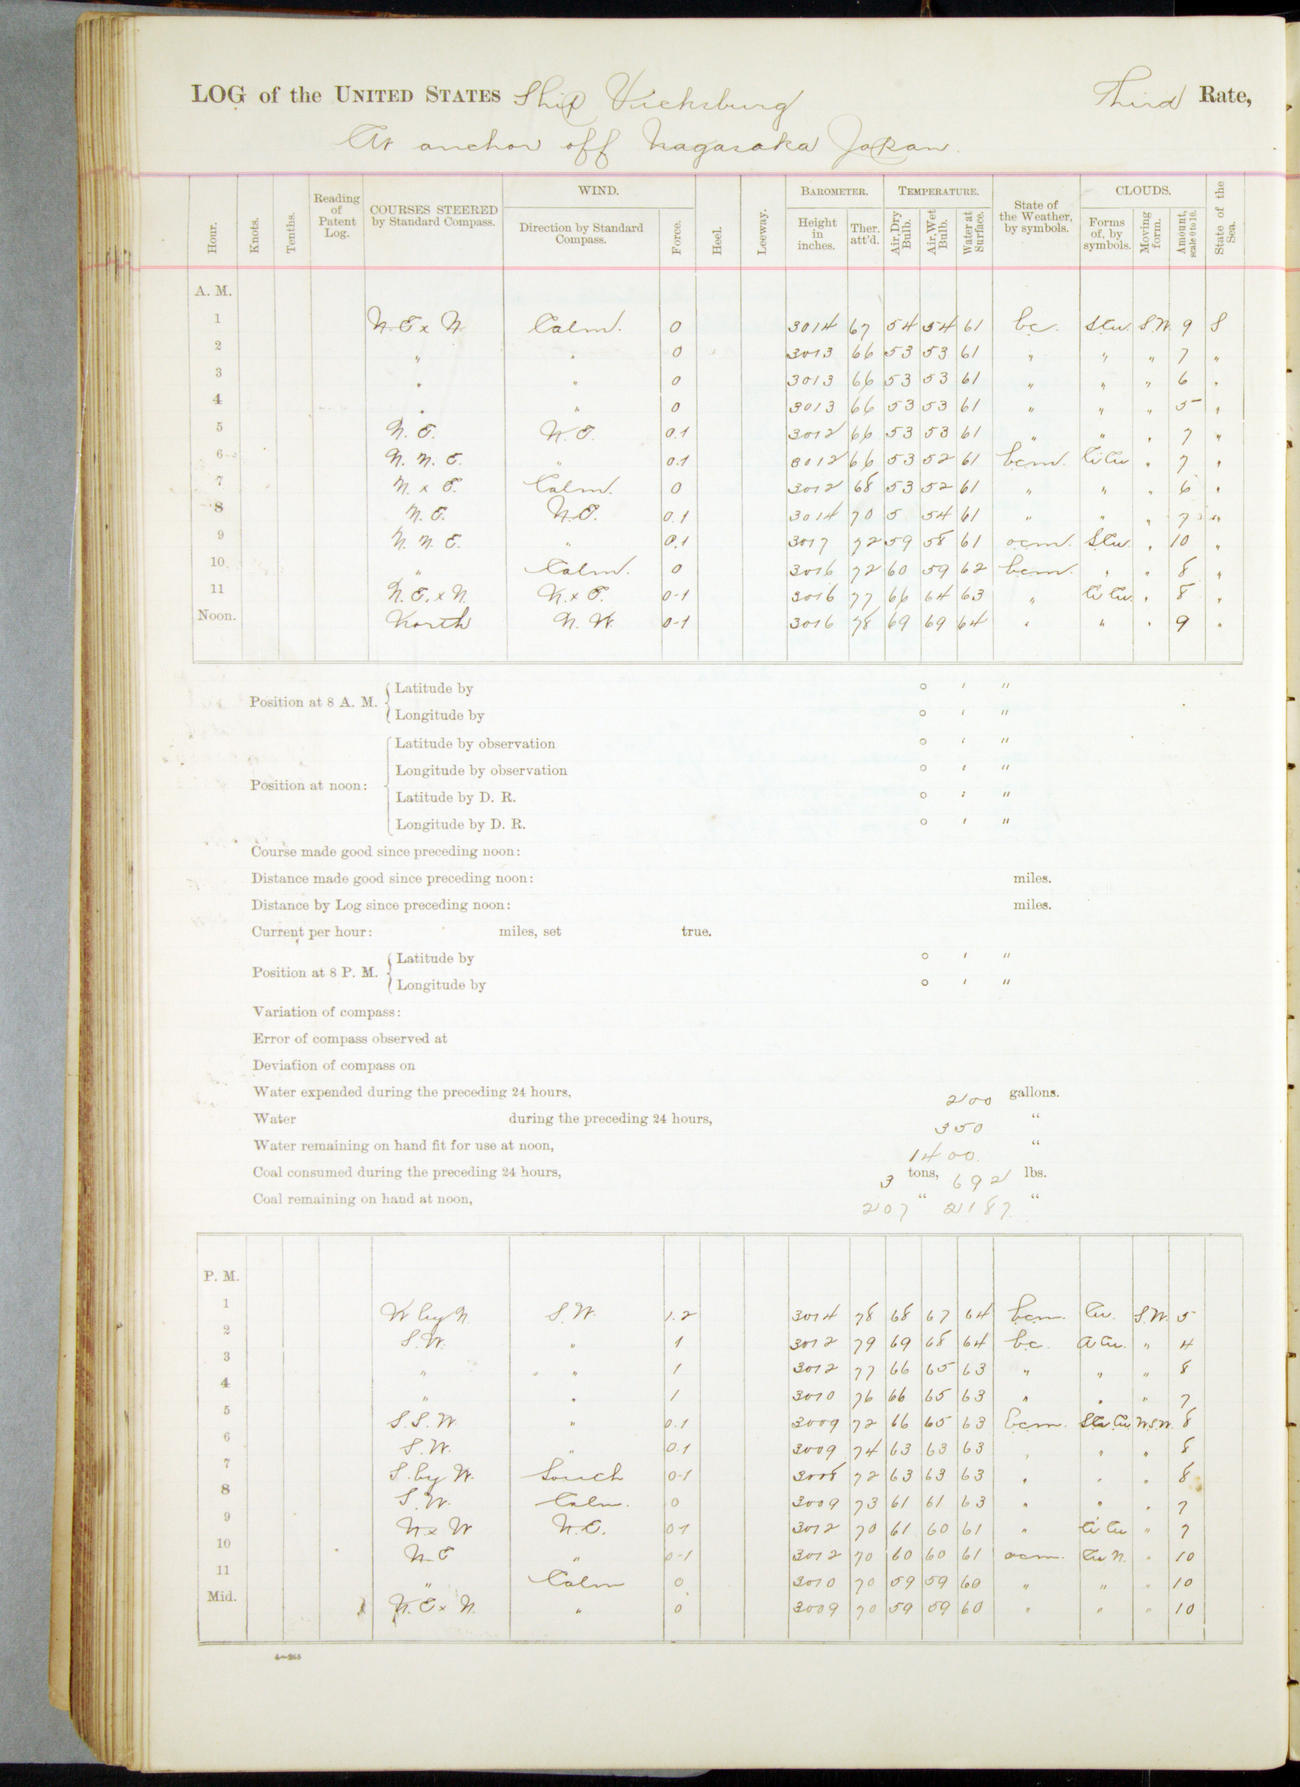 LOG of the UNITED STATES Ship Vicksburg Third Rate,
At anchor off Nagasaka Japan.
Hour. Knots. Tenths. Reading of Patent Log. COURSES STEERED by Standard Compass. WIND. Direction by Standard Compass. Force. Heel. Leeway. BAROMETER. Height in inches. Ther. att'd. TEMPERATURE. Air, Dry Bulb. Air, Wet Bulb. Water at Surface. State of the Weather, by symbols. CLOUDS. Forms of, by symbols. Moving form. Amount, scale 0 to 10. State of the Sea.
A. M.
1 N.E x N. Calm. 0 3014 67 54 54 61 bc. S.Cu. S.W. 9 S
2 " " 0 3013 66 53 53 61 " " " 7 "
3 " " 0 3013 66 53 53 61 " " " 6 "
4 " " 0 3013 66 53 53 61 " " " 5 "
5 N.E. N.E. 0.1 3012 66 53 53 61 " " " 7 "
6 N.N.E. " 0.1 3012 66 53 52 61 bcm. Ci Cu " 7 "
7 N. x E. Calm. 0 3012 68 53 52 61 " " " 6 "
8 N.E. N.E. 0.1 3014 70 5 54 61 " " " 7 "
9 N.N.E. " 0.1 3017 72 59 58 61 ocm. S.Cu. " 10 "
10 " Calm. 0 3016 72 60 59 62 bcm. " " 8 "
11 N.E. x N. N. x E. 0-1 3016 77 66 64 63 " Ci Cu. " 8 "
Noon. North N.W. 0-1 3016 78 69 69 64 " " " 9 "
Position at 8 A. M. Latitude by ° ' "
Longitude by ° ' "
Position at noon: Latitude by observation ° ' "
Longitude by observation ° ' "
Latitude by D. R. ° ' "
Longitude by D. R. ° ' "
Course made good since preceding noon:
Distance made good since preceding noon: miles.
Distance by Log since preceding noon: miles.
Current per hour: miles, set true.
Position at 8 P. M. Latitude by ° ' "
Longitude by ° ' "
Variation of compass:
Error of compass observed at
Deviation of compass on
Water expended during the preceding 24 hours, 200 gallons.
Water during the preceding 24 hours, 350 "
Water remaining on hand fit for use at noon, 1400. "
Coal consumed during the preceding 24 hours, 3 tons, 692 lbs.
Coal remaining on hand at noon, 207 " 2187. "
P. M.
1 W by N. S.W. 1.2 3014 78 68 67 64 bcm. Cu. S.W. 5
2 S.W. " 1 3012 79 69 68 64 bc. A Cu. " 4
3 " " 1 3012 77 66 65 63 " " " 8
4 " " 1 3010 76 66 65 63 " " " 7
5 S.S.W. " 0.1 3009 72 66 65 63 bcm. Cu. W.S.W. 8
6 S.W. " 0.1 3009 74 63 63 63 " " " 8
7 S. by W. South 0-1 3008 72 63 63 63 " " " 8
8 S.W. Calm. 0 3009 73 61 61 63 " " " 7
9 N x W N.E. 0 1 3012 70 61 60 61 " Ci Cu " 7
10 N.E " 0-1 3012 70 60 60 61 ocm. Cu N. " 10
11 " Calm 0 3010 70 59 59 60 " " " 10
Mid. N.E x N. " 0 3009 70 59 59 60 " " " 10